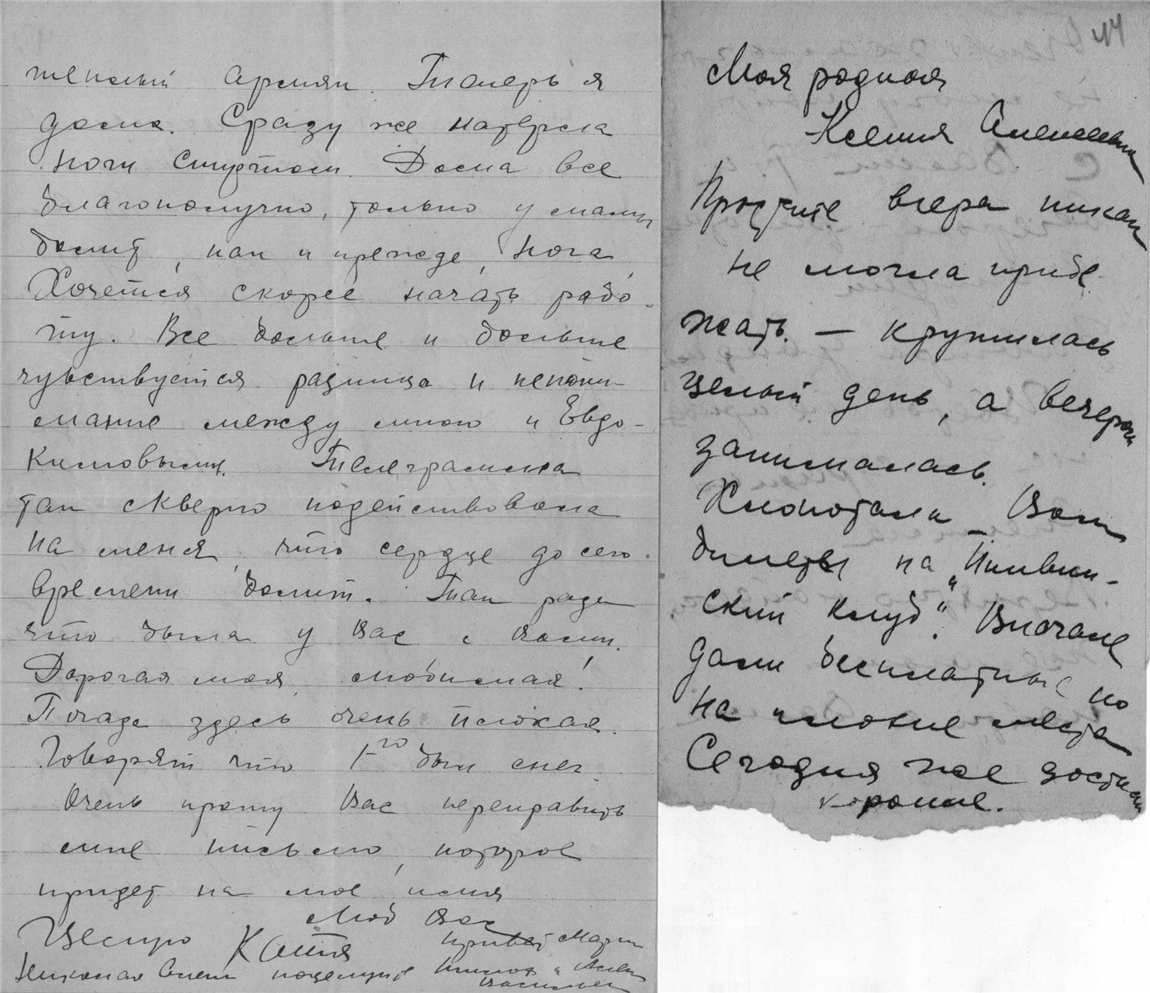 женский армян. Теперь я
дома. Сразу же натерла
ноги спиртом. Дома все
благополучно, только у мамы
болит, как и прежде, нога.
Хочется скорее начать рабо-
ту. Все больше и больше
чувствуется разница и непони-
мание между мною и Евдо-
кимовыми. Телеграмма
так скверно подействовала
на меня, что сердце до сего
времени болит. Так рада
что была у Вас с Вами.
Дорогая моя, любимая!
Погода здесь очень плохая.
Говорят что 1го был снег.
Очень прошу Вас переправить
мне письмо, которое
придет на мое имя
Люб Вас
Целую Катя
Привет Марии
поцелуйте
14
Моя родная
Ксения Алексеевна
Простите вчера никак
не могла прибе-
жать — кружилась
целый день, а вечером
занималась.
Хлопотала Вам
билеты на „Пиквик-
ский клуб". Вначале
дали бесплатные но
на плохие места
Сегодня же достали
хорошие.